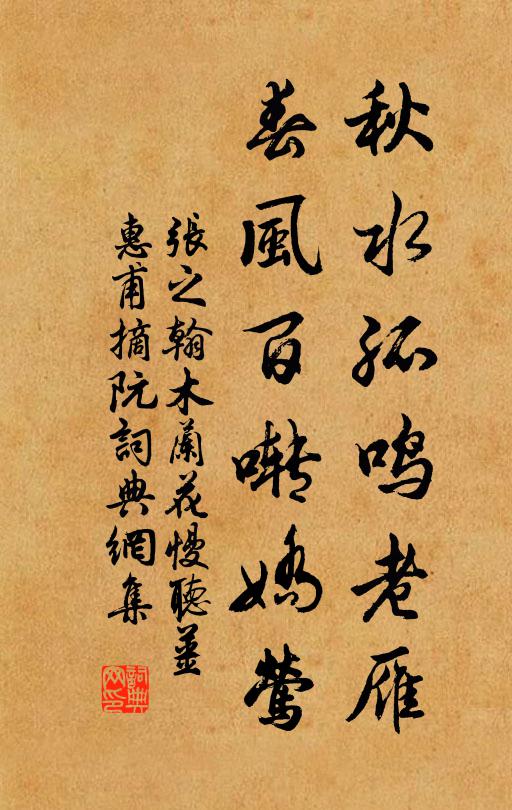 秋水孤鸣老雁
春風百囀嬌鶯
張之翰木蘭花慢聽姜
惠甫摘阮詞典網集
詞典
网印